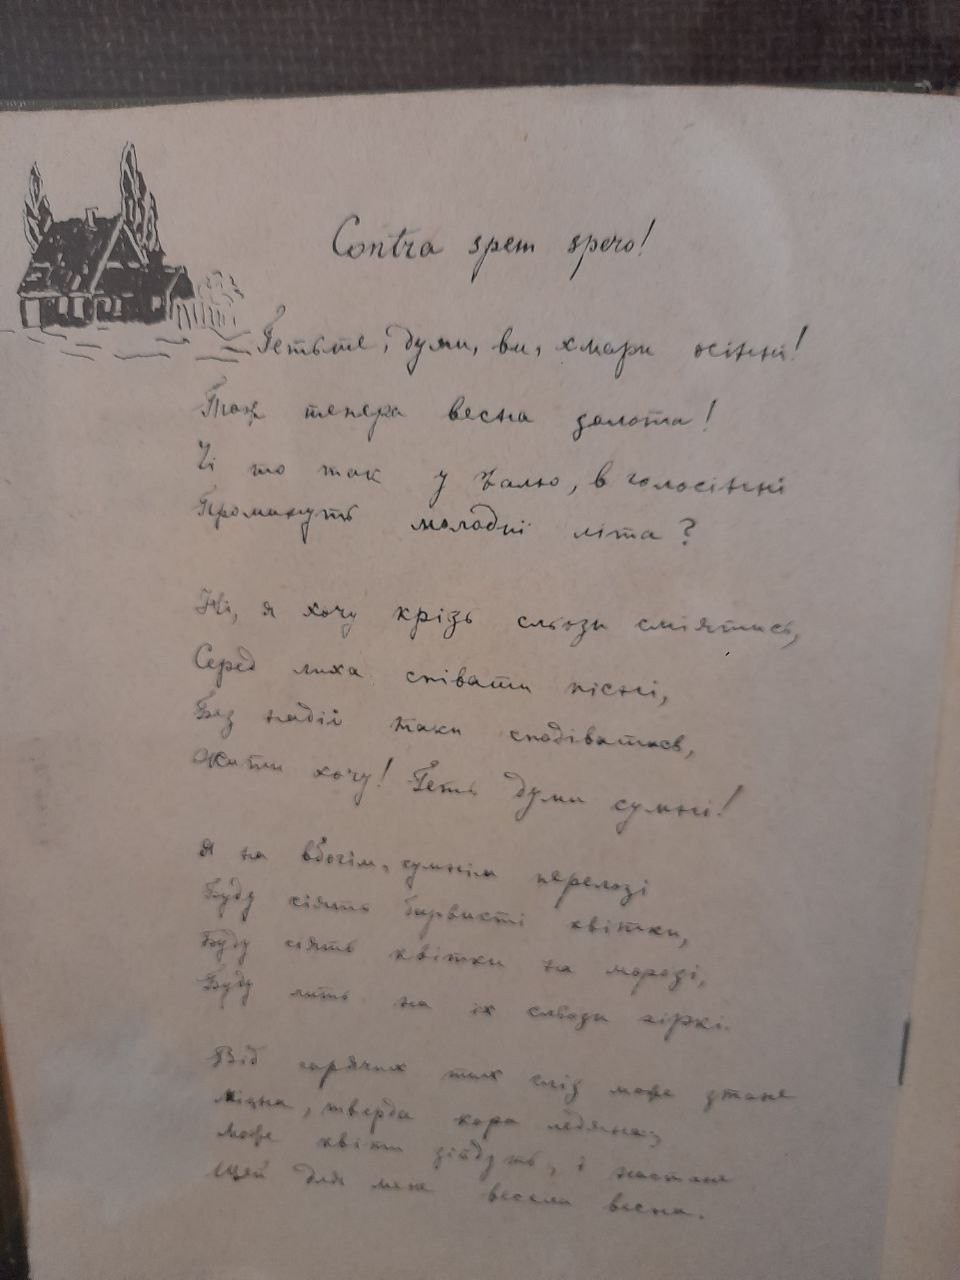 Contra spem spero!
Гетьте, думи, ви, хмари осінні!
Тож тепера весна золота!
Чі то так у жалю, в голосінні
Проминуть молодиї літа?
Ні, я хочу крізь сльози сміятись,
Серед лиха співати пісні,
Без надії таки сподіватись,
Жити хочу! Геть думи сумні!
Я на вбогім, сумнім перелозі
Буду сіять барвисті квітки,
Буду сіять квітки на морозі,
Буду лить на їх сльози гіркі.
Від гарячих тих сліз може зтане
Міцна, тверда кора ледяна,
Може квіти зійдуть, і настане
Щей для мене весела весна.